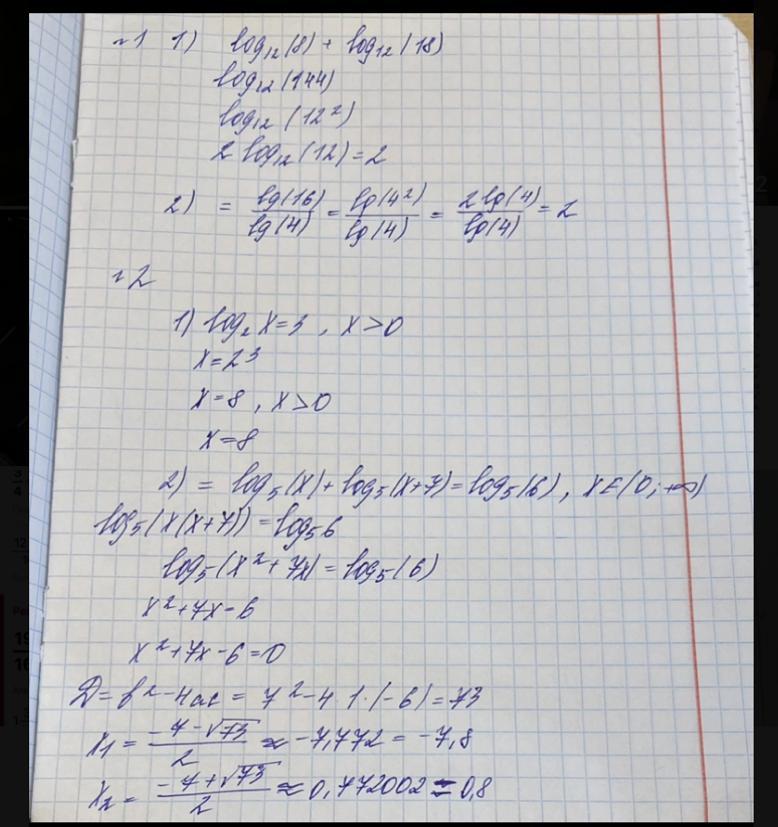 №1 1) log₁₂(8) + log₁₂(18)
log₁₂(144)
log₁₂(12²)
2 log₁₂(12) = 2
2) = lg(16)/lg(4) = lg(4²)/lg(4) = 2lg(4)/lg(4) = 2
№2
1) log₂ x = 3 , x > 0
x = 2³
x = 8 , x > 0
x = 8
2) = log₅(x) + log₅(x+7) = log₅(6) , x∈(0; +∞)
log₅(x(x+7)) = log₅6
log₅(x² + 7x) = log₅(6)
x² + 7x - 6
x² + 7x - 6 = 0
D = b² - 4ac = 7² - 4·1·(-6) = 73
x₁ = (-7 - √73)/2 ≈ -7,772 = -7,8
x₂ = (-7 + √73)/2 ≈ 0,772002 = 0,8